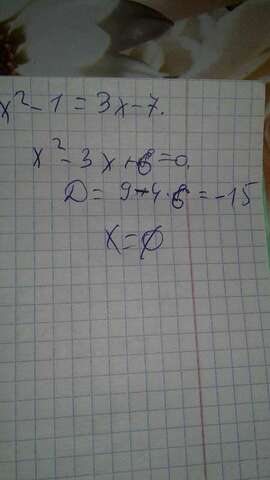 x² - 1 = 3x - 7.
x² - 3x + 6 = 0.
D = 9 - 4 · 6 = -15
x = ∅